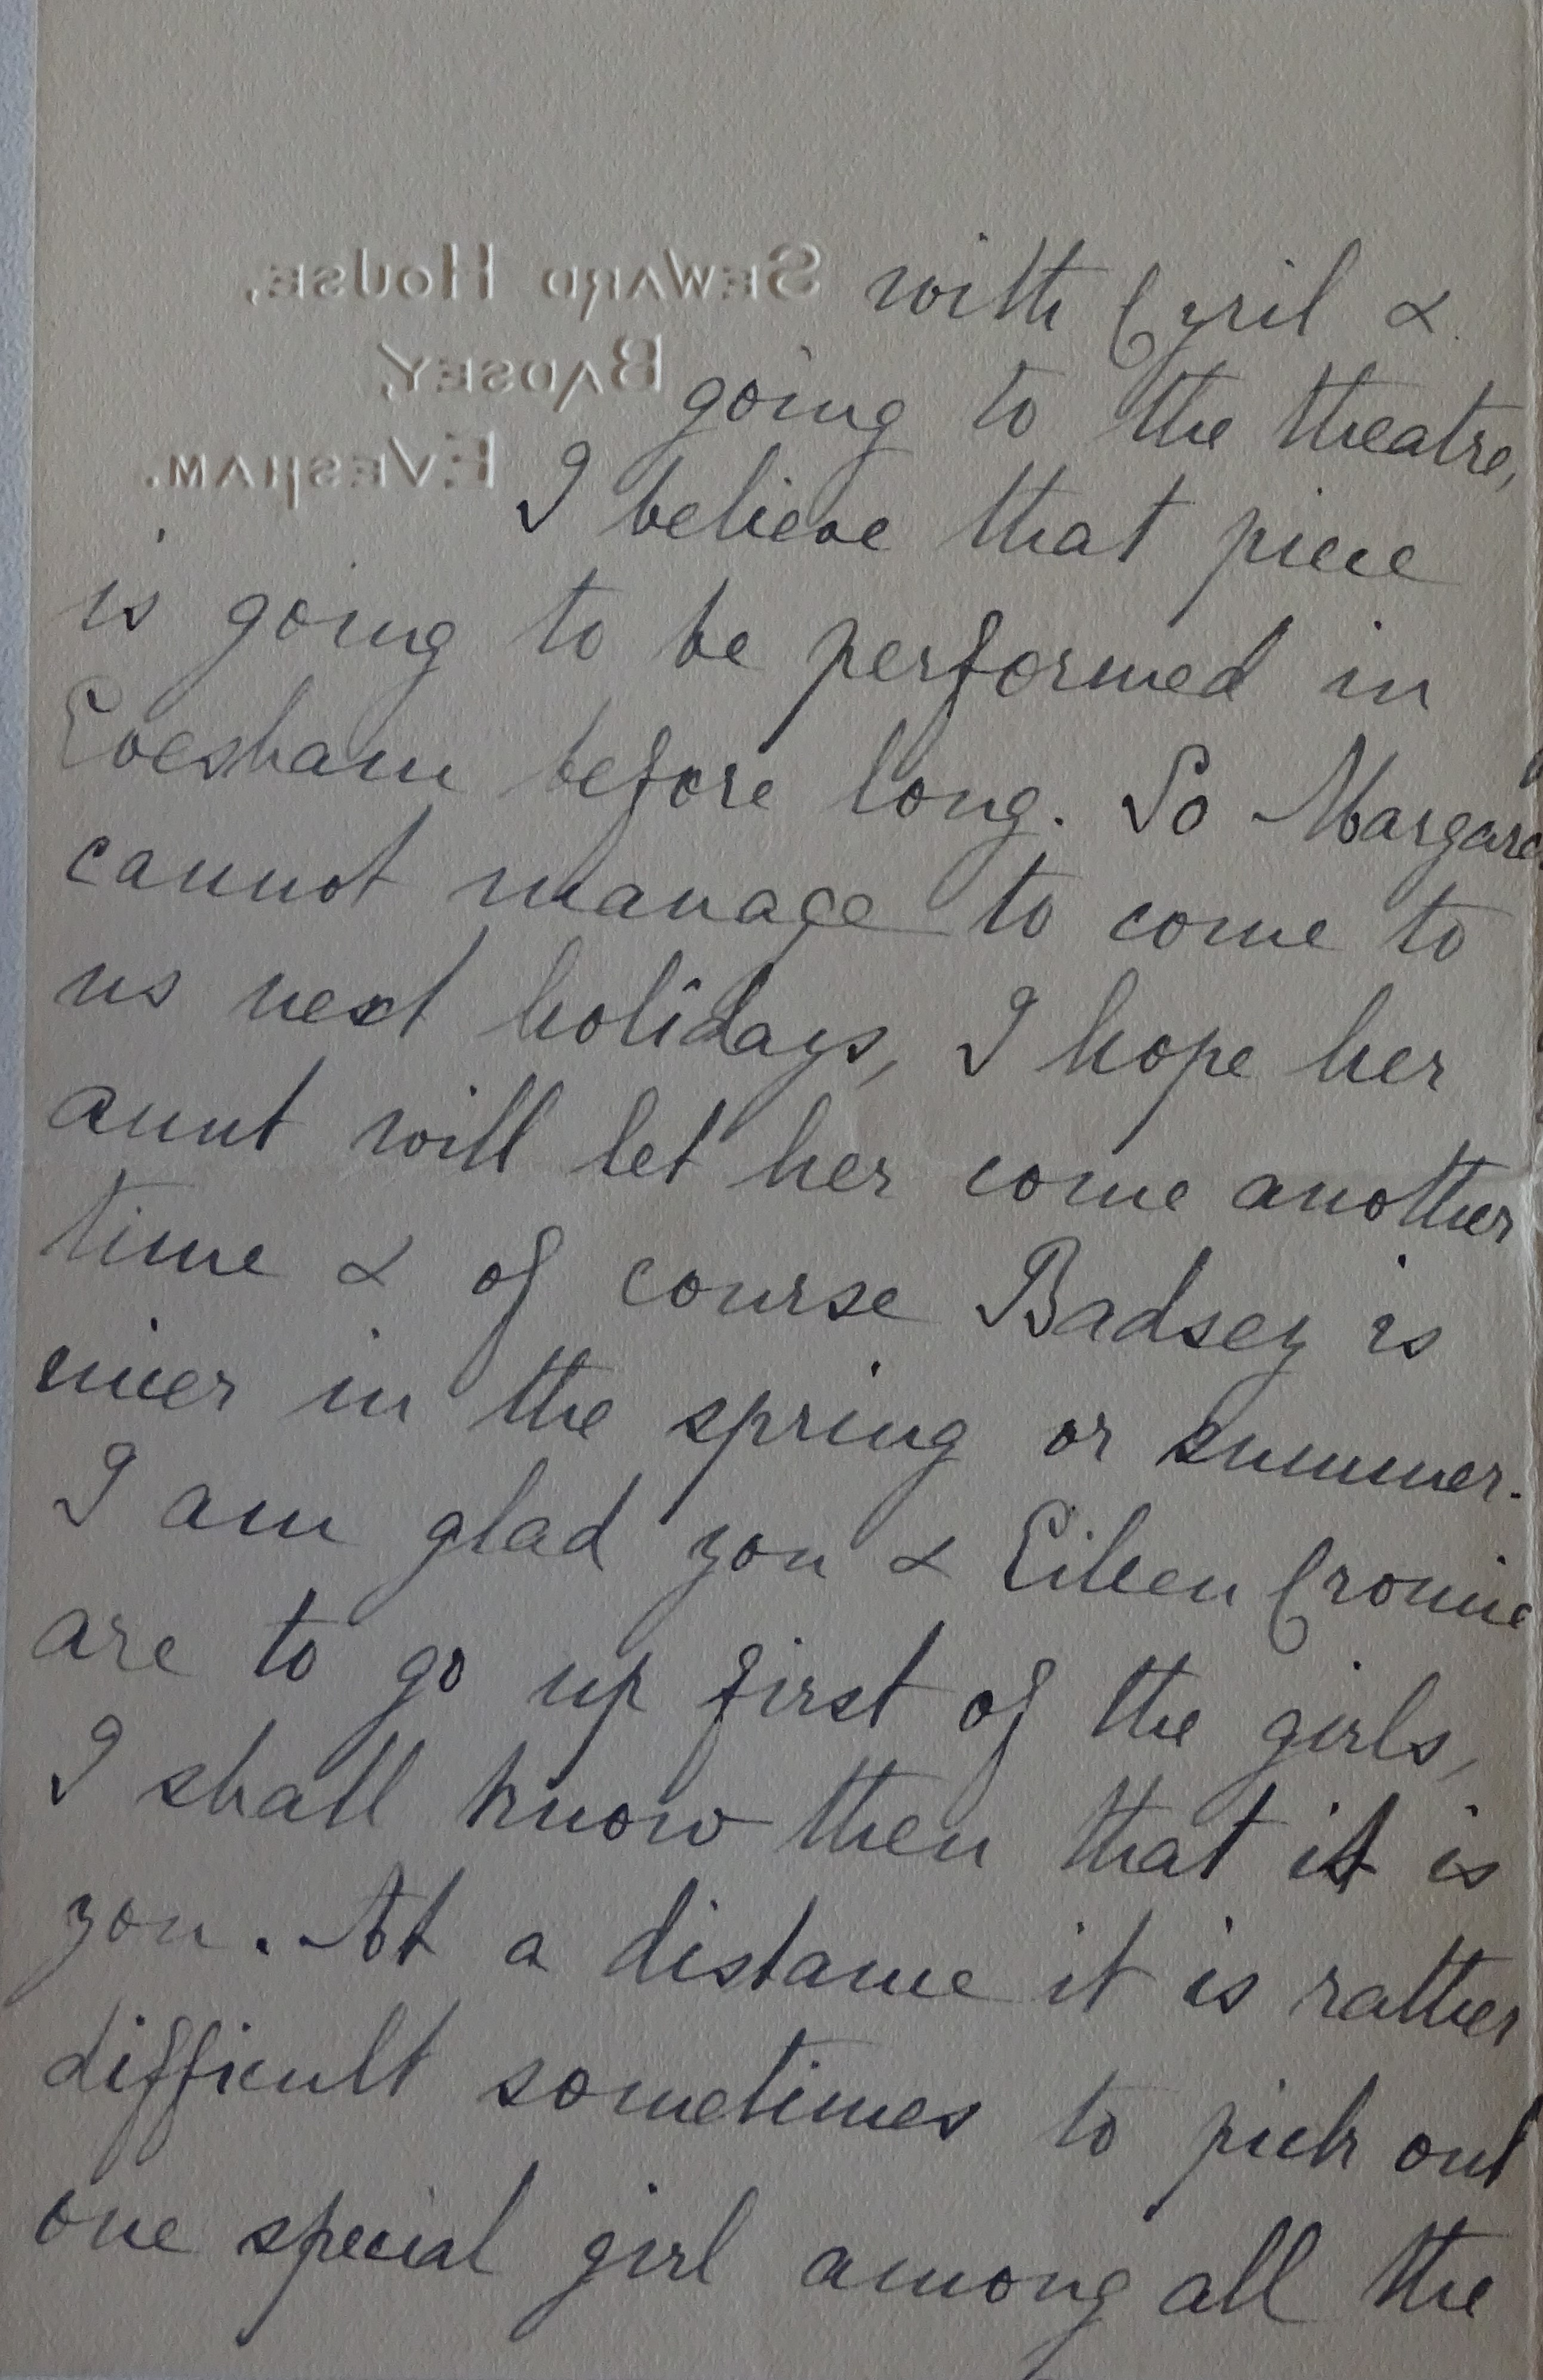 Seward House,
Badsey,
Evesham.
with Cyril &
going to the theatre,
I believe that piece
is going to be performed in
Evesham before long. So Margare
cannot manage to come to
us next holidays, I hope her
aunt will let her come another
time & of course Badsey is
nicer in the spring or summer.
I am glad you & Eileen Cronie
are to go up first of the girls,
I shall know then that it is
you. At a distance it is rather
difficult sometimes to pick out
one special girl among all the